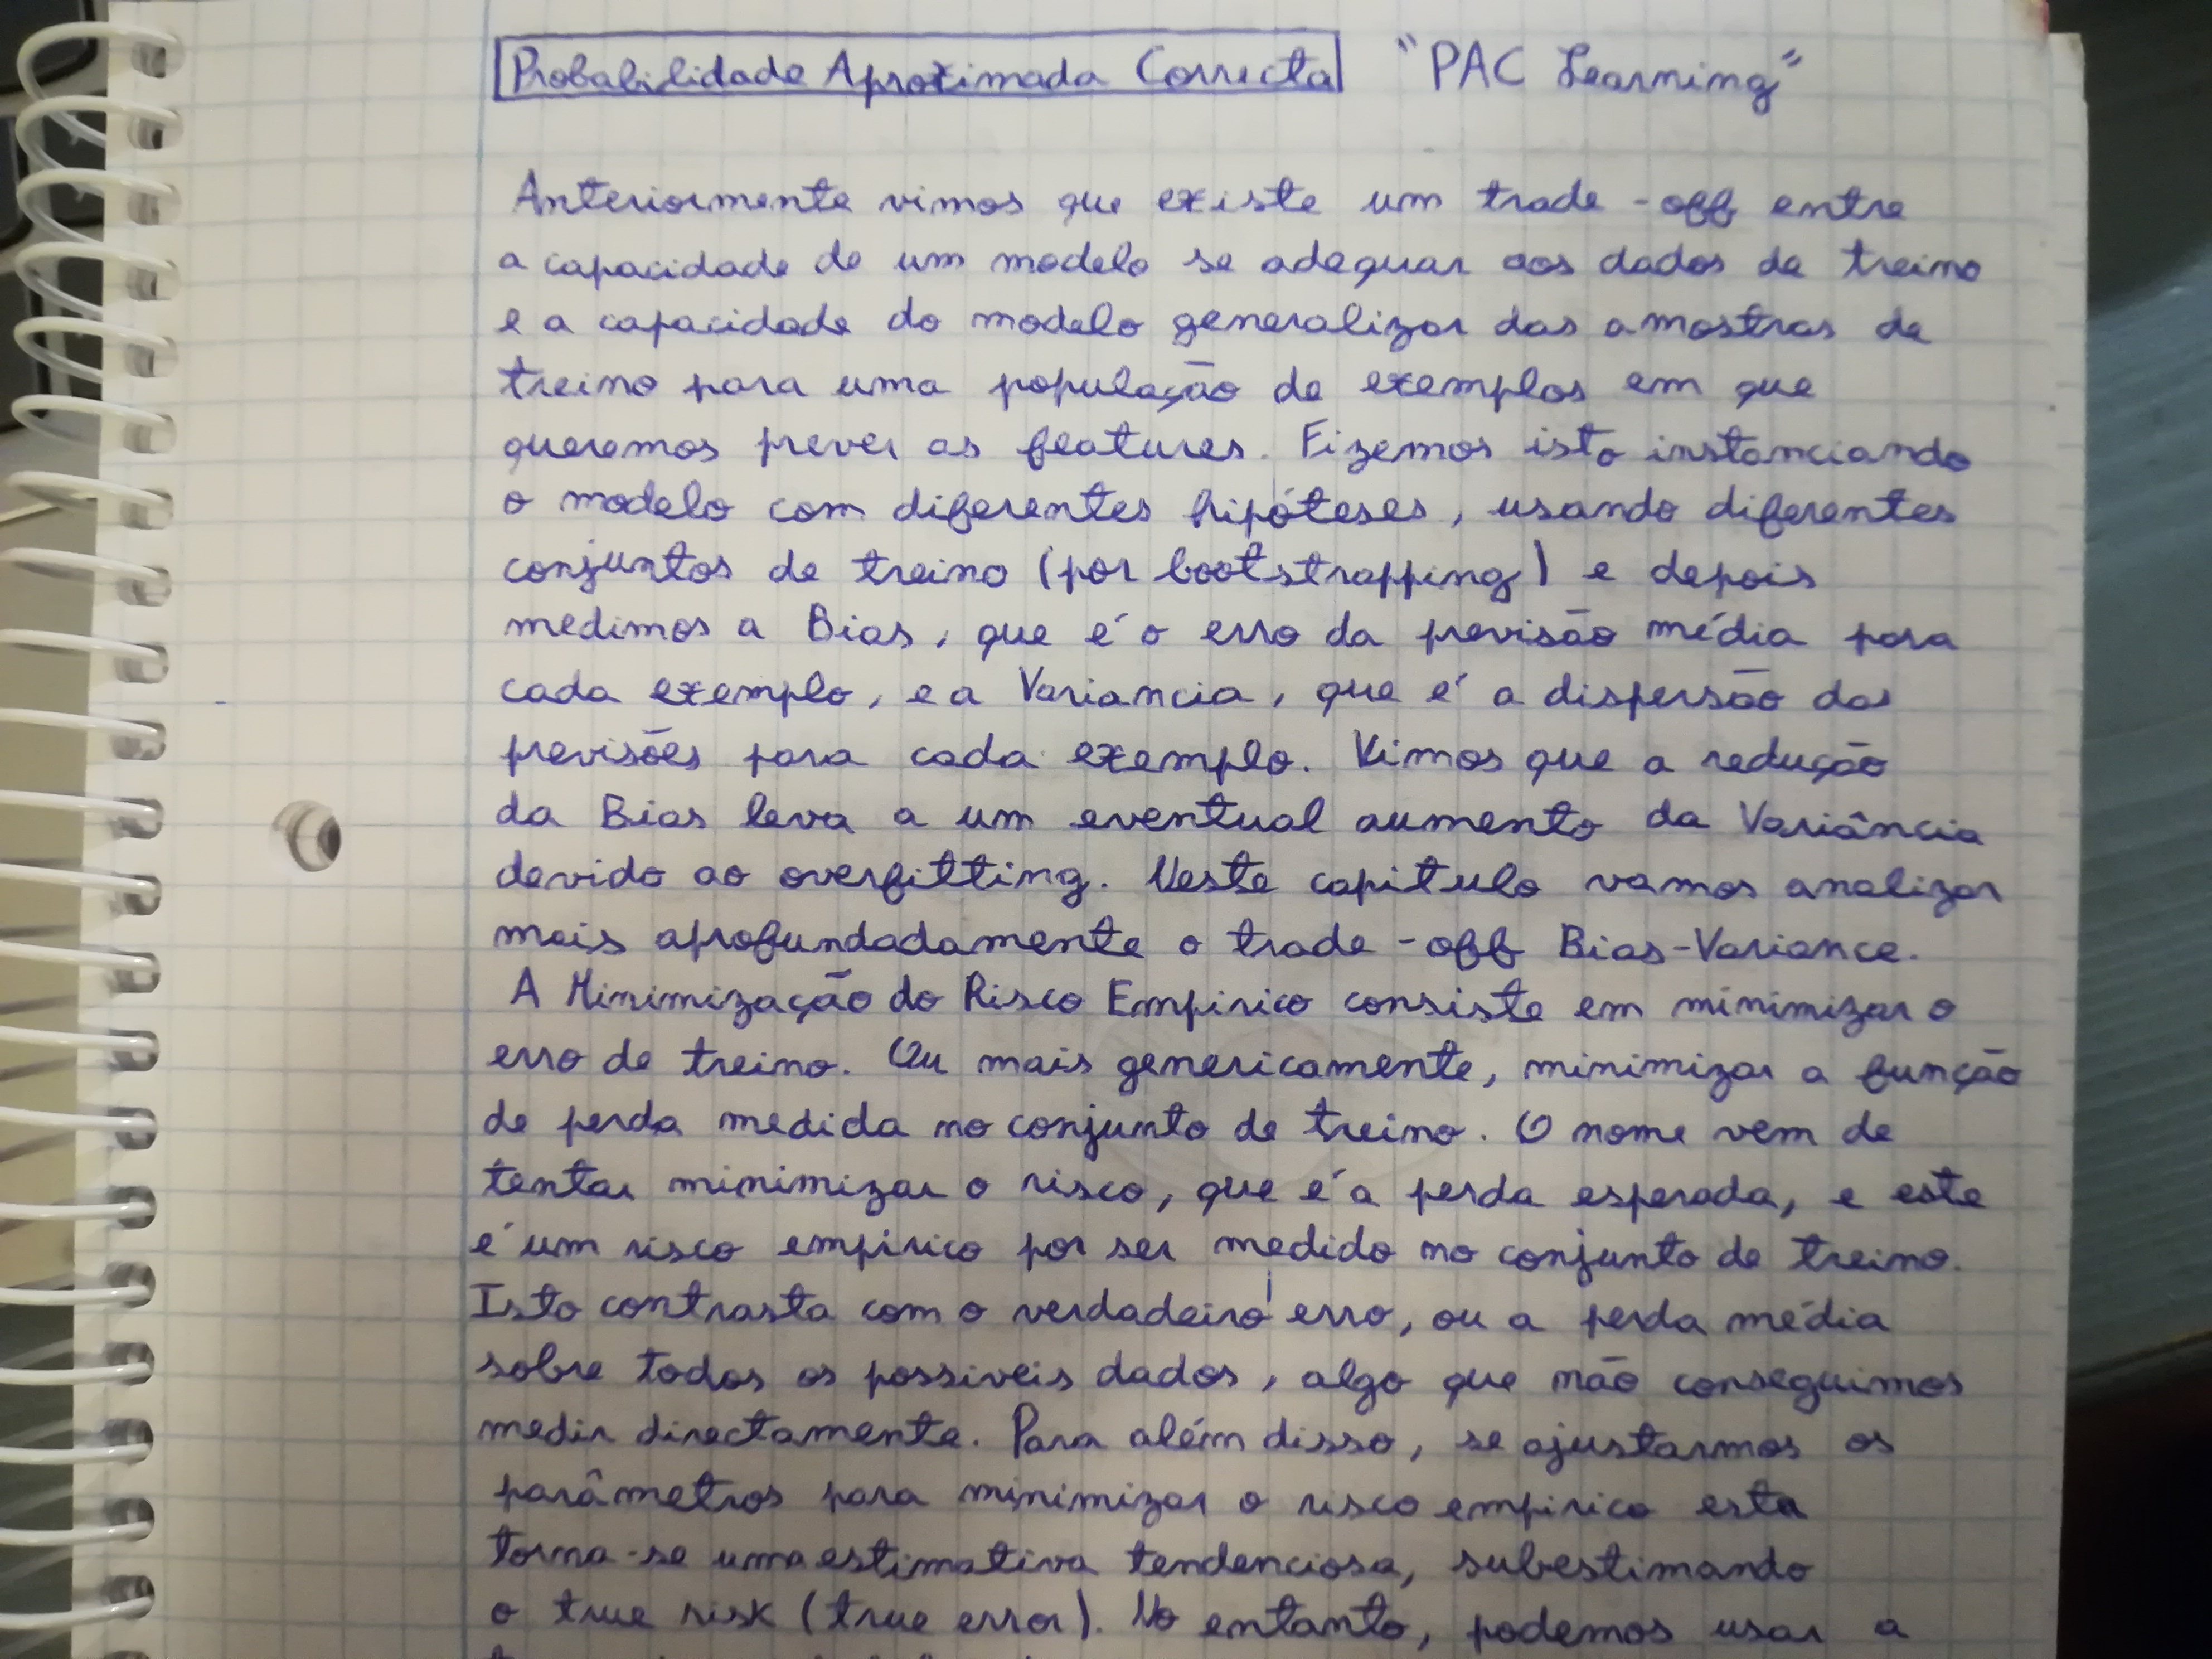 Probabilidade Aproximada Correcta "PAC Learning"
Anteriormente vimos que existe um trade-off entre
a capacidade de um modelo se adequar aos dados de treino
e a capacidade do modelo generalizar das amostras de
treino para uma população de exemplos em que
queremos prever as features. Fizemos isto instanciando
o modelo com diferentes hipóteses, usando diferentes
conjuntos de treino (por bootstrapping) e depois
medimos a Bias, que é o erro da previsão média para
cada exemplo, e a Variancia, que é a dispersão das
previsões para cada exemplo. Vimos que a redução
da Bias leva a um eventual aumento da Variância
devido ao overfitting. Neste capitulo vamos analizar
mais aprofundadamente o trade-off Bias-Variance.
A Minimização do Risco Empirico consiste em minimizar o
erro de treino. Ou mais genericamente, minimizar a função
de perda medida no conjunto de treino. O nome vem de
tentar minimizar o risco, que é a perda esperada, e este
é um risco empirico por ser medido no conjunto de treino.
Isto contrasta com o verdadeiro erro, ou a perda média
sobre todos os possiveis dados, algo que não conseguimos
medir directamente. Para além disso, se ajustarmos os
parâmetros para minimizar o risco empirico esta
torna-se uma estimativa tendenciosa, subestimando
o true risk (true error). No entanto, podemos usar a